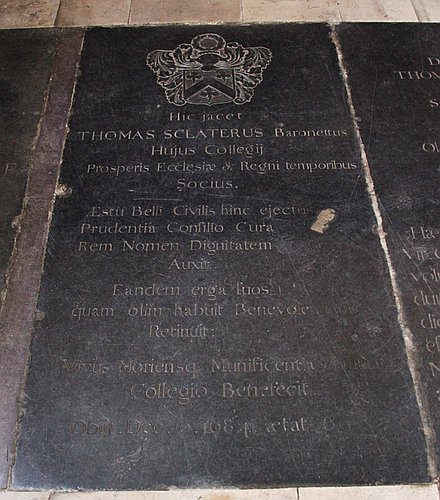 Hic jacet
THOMAS SCLATERUS Baronettus
Hujus Collegij
Prosperis Ecclesiæ & Regni temporibus
Socius.
Æstu Belli Civilis hinc eject
Prudentia Consilio Cura
Rem Nomen Dignitatem
Auxit.
Eandem erga suos
quam olim habuit Benevole
Retinuit:
Vivus Moriensq Munificentia
Collegio Benefecit.
Obijt Dec. 168 ætat
THOM